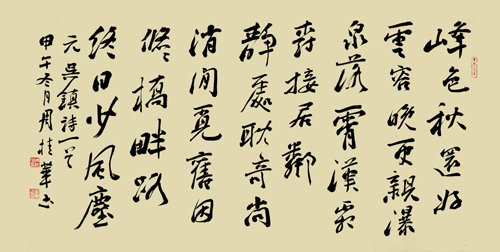 峰色秋還好
雲容晚更親瀑
泉落霄漢霞
接居鄰
靜處耽奇尚
消閒覓舊因
橋畔路
終日少風塵
元吳鎮詩一首
甲午冬月周桂華書